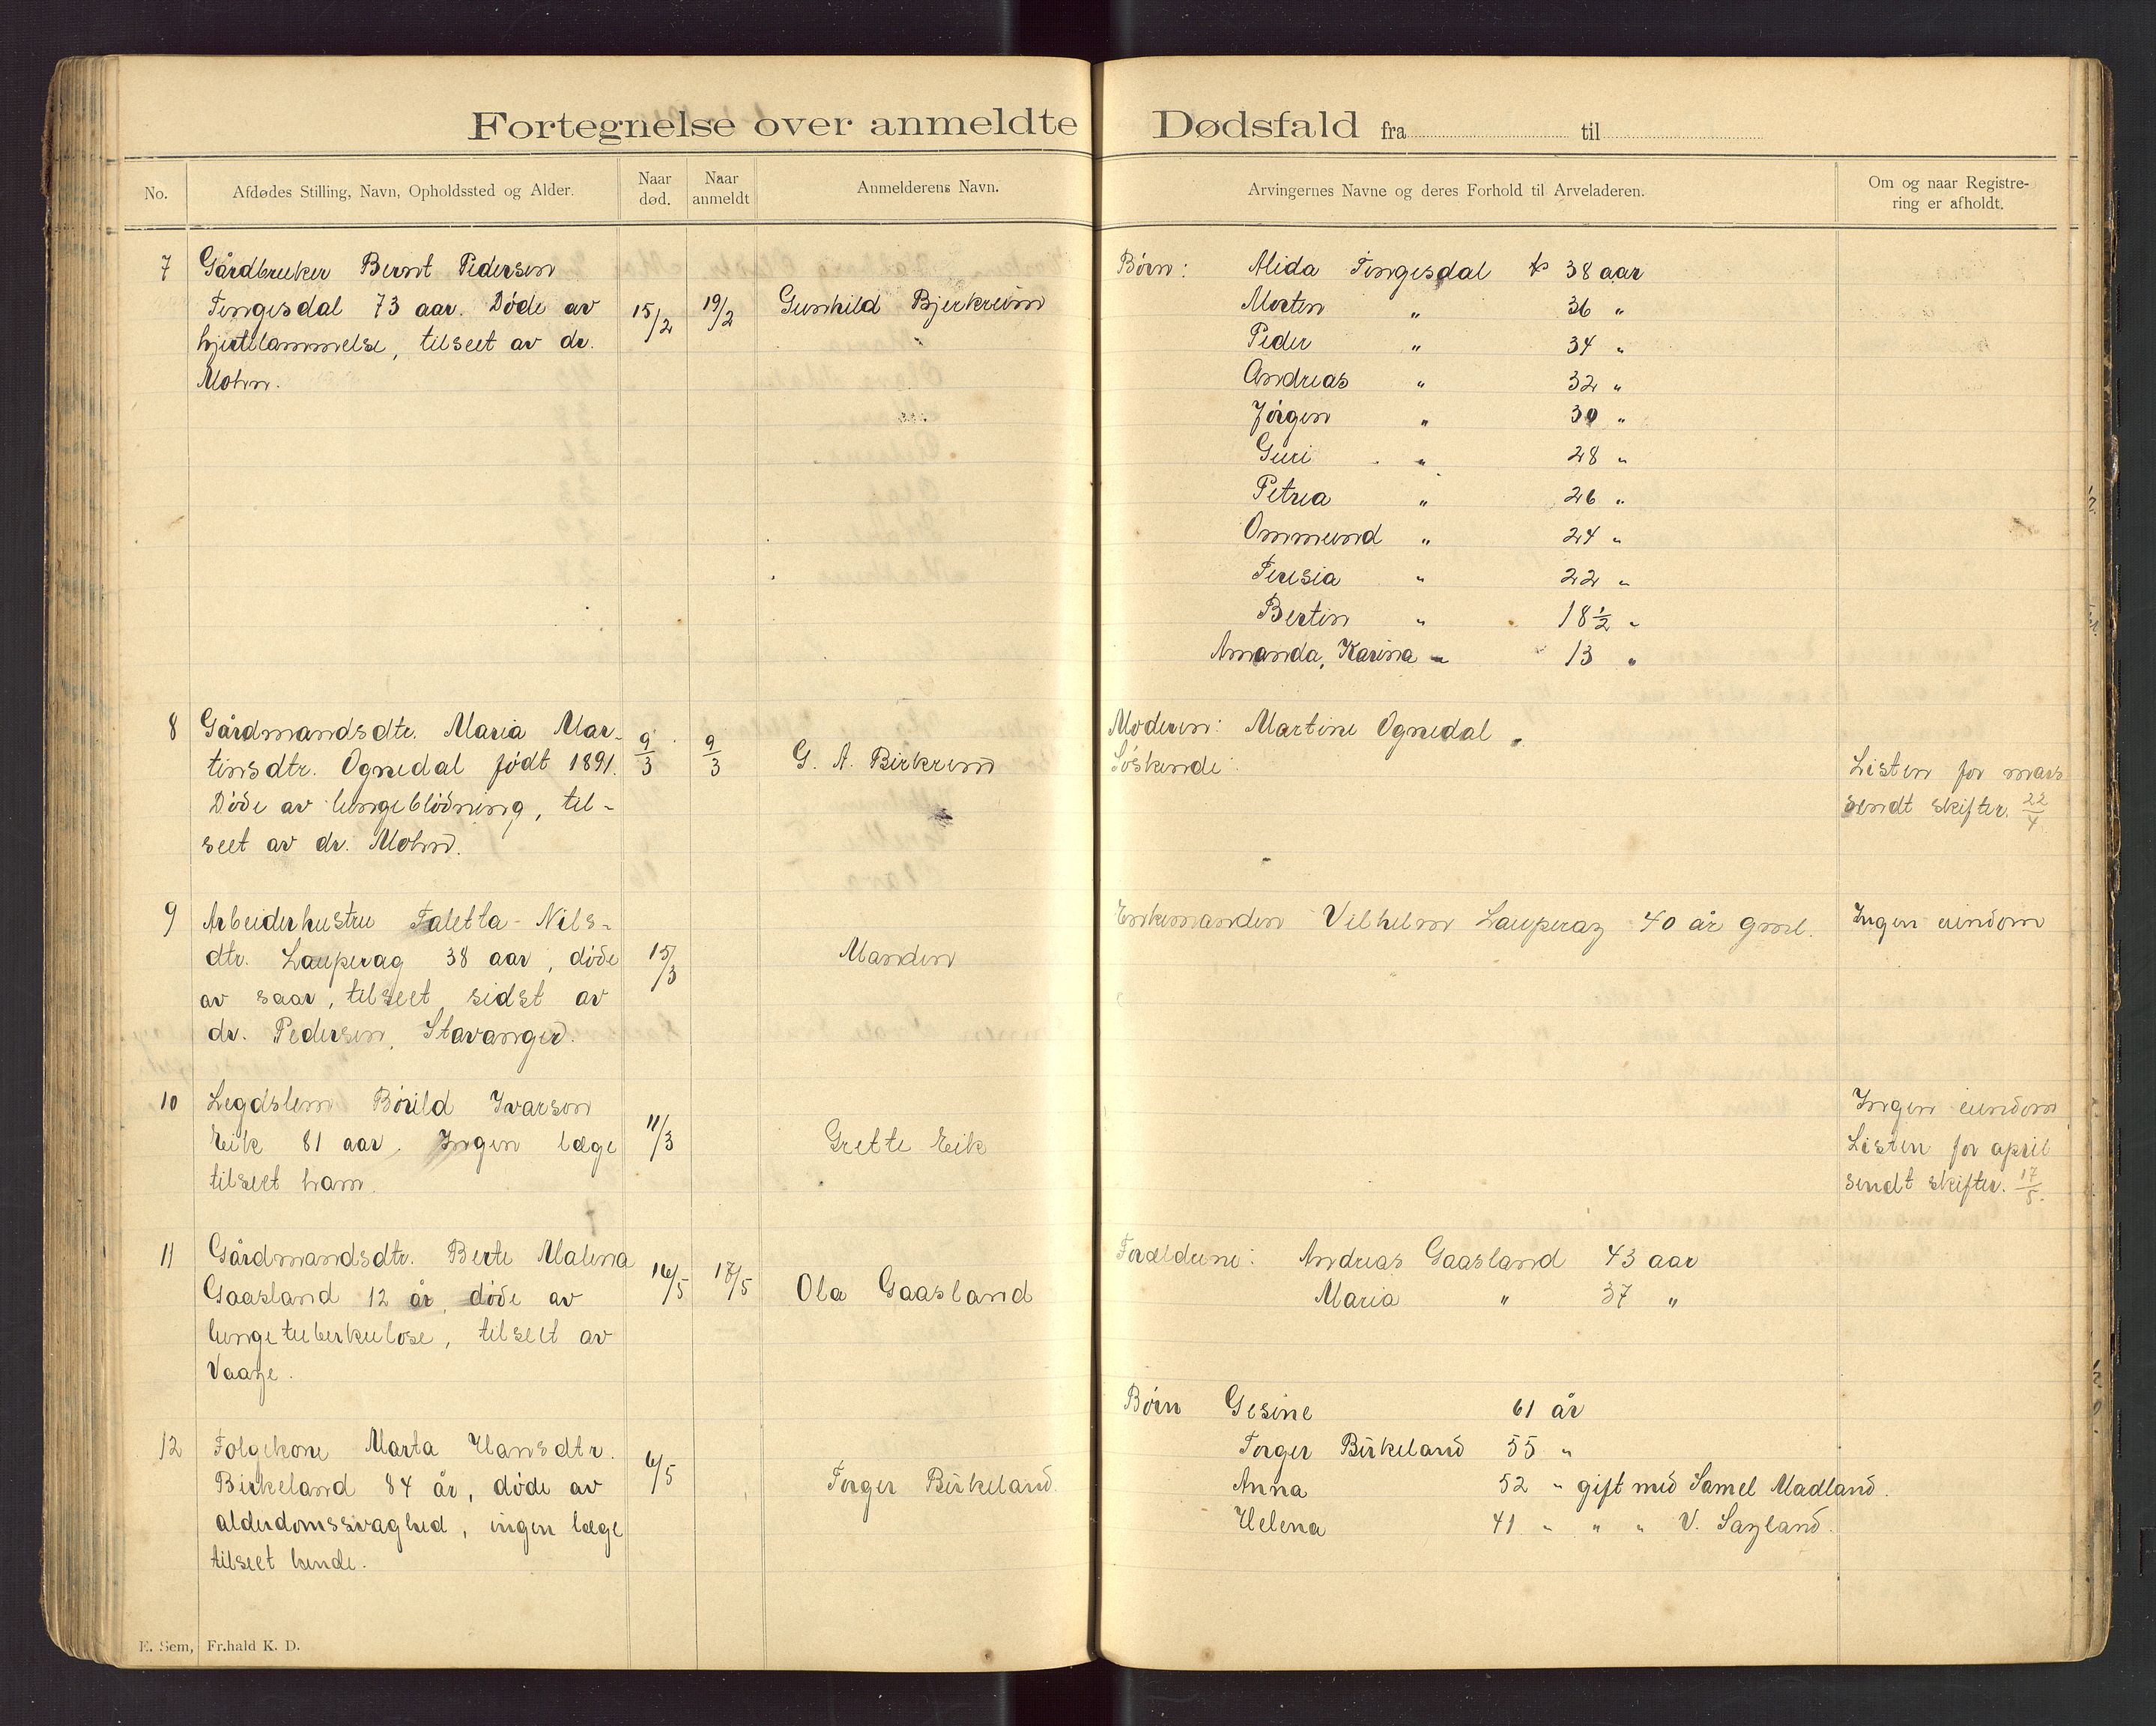 Fortegnelse over anmeldte Dødsfald fra til
No.
Afdødes Stilling, Navn, Opholdssted og Alder.
Naar død.
Naar anmeldt
Anmelderens Navn.
Arvingernes Navne og deres Forhold til Arveladeren.
Om og naar Registre-
ring er afholdt.
7 Gårdbruker Bernt Pedersen
Tengesdal 73 aar. Döde av 15/2 19/2 Gunhild Bjerkreim
hjertelammelse, tilseet av dr.
Mohn.
Börn: Alida Tengesdal 38 aar
Morten " 36 "
Peder " 34 "
Andreas " 32 "
Jörgen " 30 "
Guri " 28 "
Petrea " 26 "
Ommund " 24 "
Teresia " 22 "
Bertin " 18 1/2 "
Amanda, Karina " 13 "
8 Gårdmandsdtr. Maria Mar-
tinsdtr. Ognedal födt 1891. 9/3 9/3 G. A. Birkreim
Döde av lungeblödning, til-
seet av dr. Mohn.
Moderen: Martine Ognedal
Söskende:
Listen for mars
sendt skifter. 22/4
9 Arbeiderhustru Taletta Nils-
dtr. Lauperag 38 aar, döde 15/3 Manden
av saar, tilseet sidst av
dr. Pedersen, Stavanger.
Enkemanden Vilhelm Lauperag 40 år gml.
Ingen eiendom
10 Legdslem Böril​d Ivarson
Eik 81 aar. Ingen læge 11/3 Grette Eik
tilseet ham.
Ingen eiendom
Listen for april
sendt skifter. 17/5.
11 Gårdmandsdtr. Berte Malena
Gaasland 12 år, döde av 16/5 17/5 Ola Gaasland
lungetuberkulose, tilseet av
Vaage.
Forældrene: Andreas Gaasland 43 aar
Maria " 37 "
12 Folgekone Marta Hansdtr.
Birkeland 84 år, döde av 6/5 Torger Birkeland.
alderdomssvaghed, ingen læge
tilseet hende.
Börn Gesine 61 år
Torger Birkeland 55 "
Anna 52 " gift med Samel Madland.
Helena 41 " " " V. Sagland.
E. Sem, Fr.hald K. D.